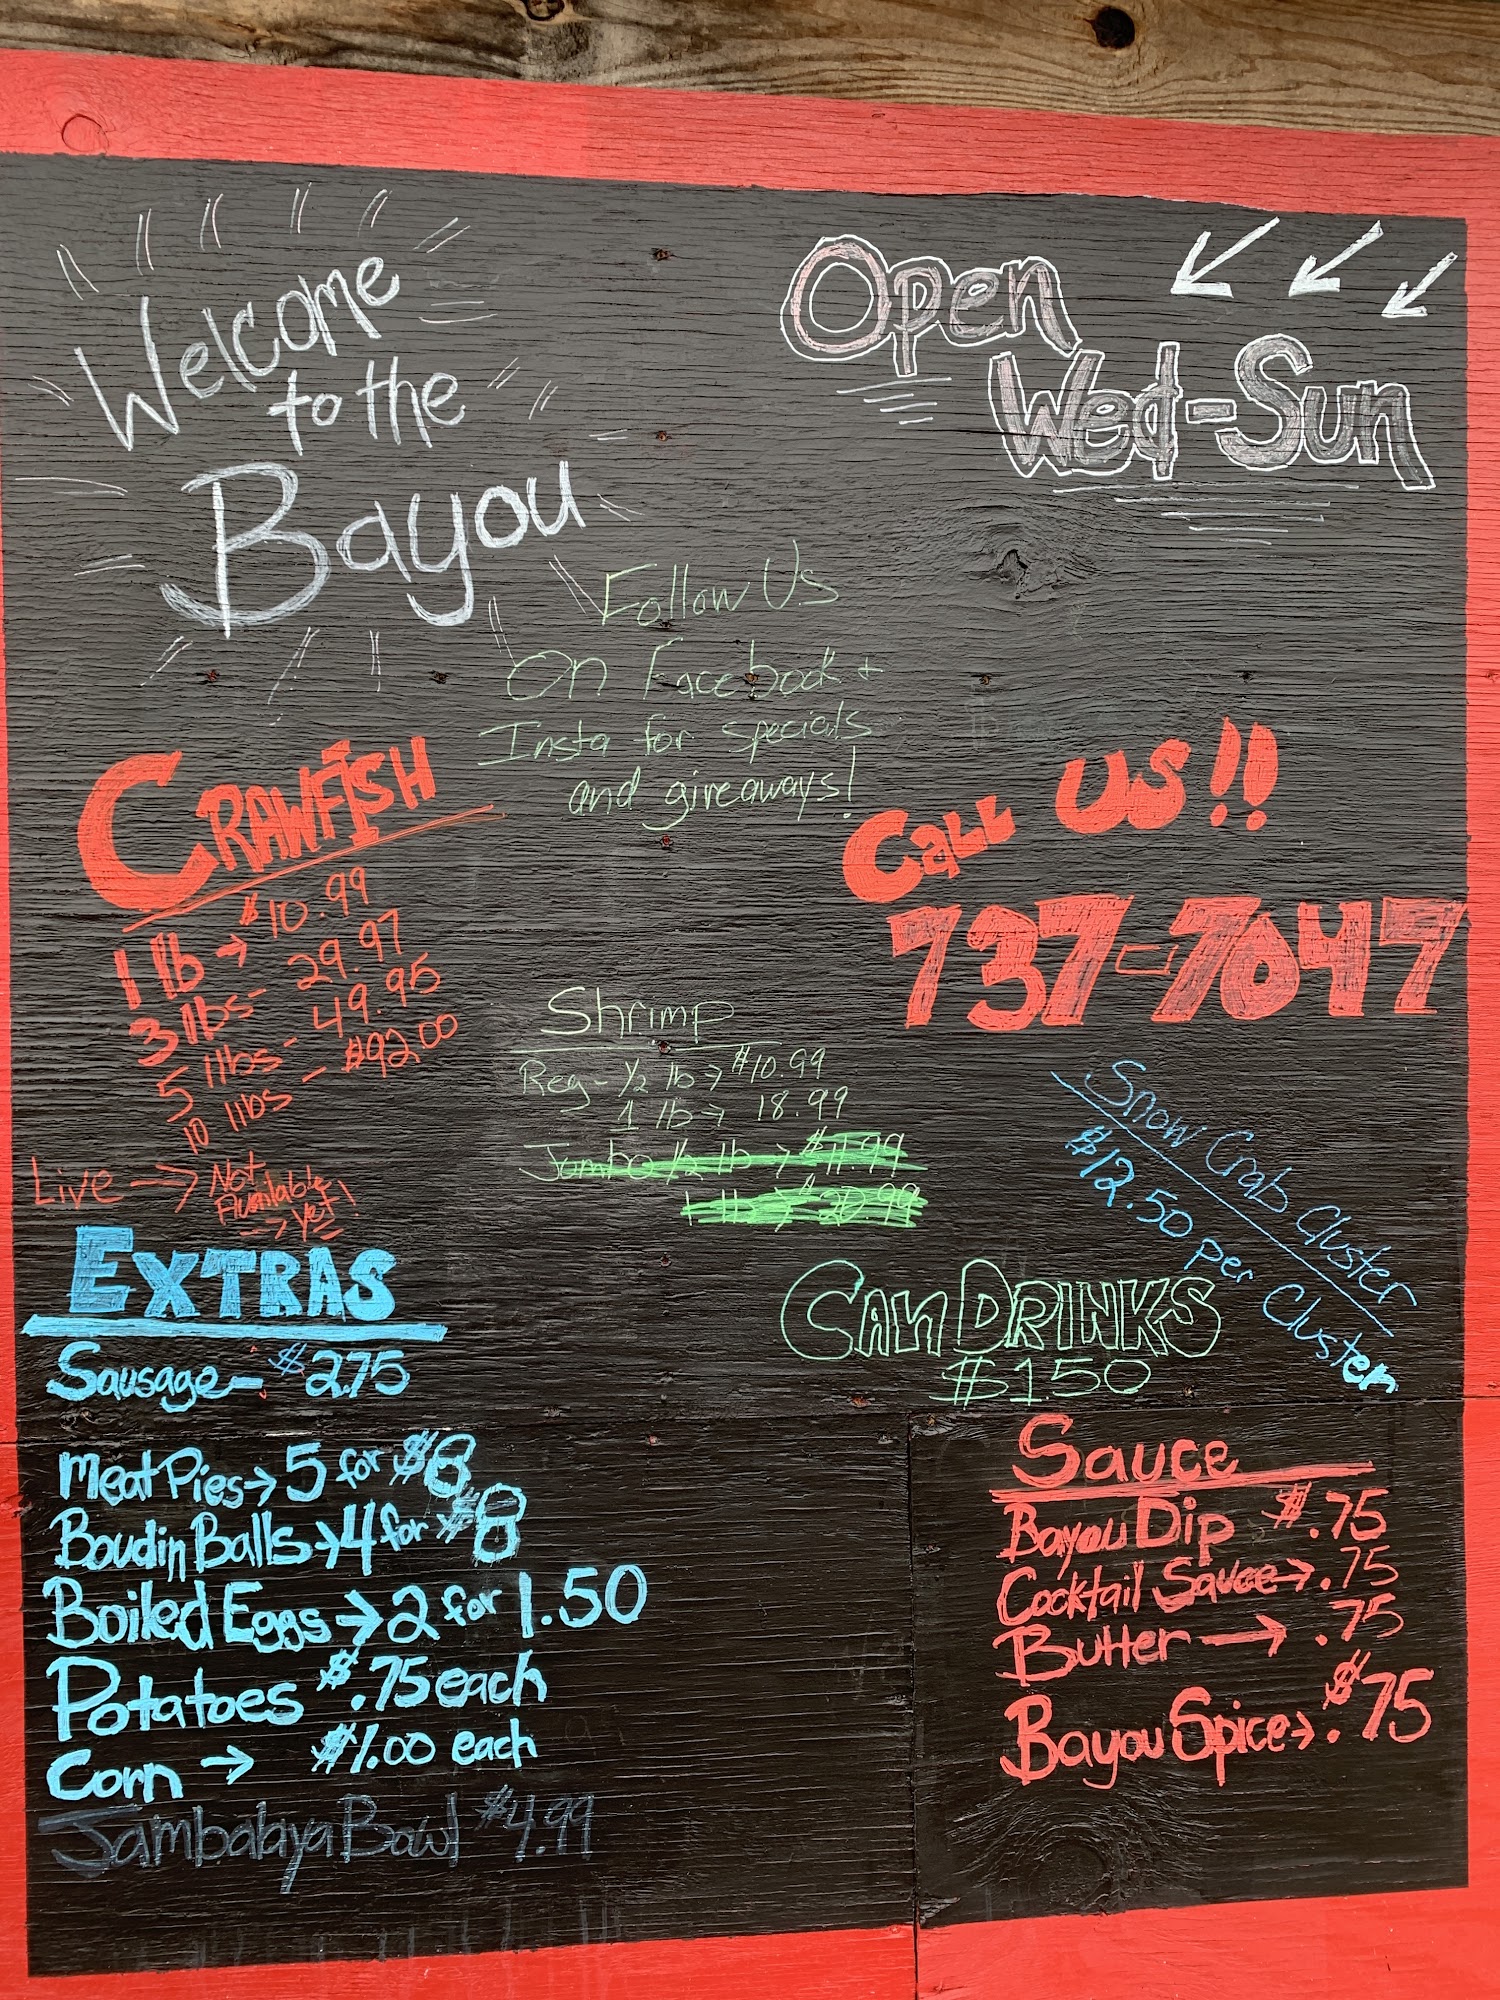 Welcome
to the
Bayou
Open
Wed-Sun
Follow Us
On Facebook +
Insta for specials
and giveaways!
CRAWFISH
1 lb → $10.99
3 lbs - 29.97
5 lbs - 49.95
10 lbs - $92.00
Live → Not
Available
→ yet!
Call US!!
737-7047
Shrimp
Reg - 1/2 lb → $10.99
1 lb → 18.99
Jumbo 1/2 lb → $11.99
1 lb → 20.99
Snow Crab Cluster
$12.50 per Cluster
CAN DRINKS
$1.50
EXTRAS
Sausage - $2.75
Meat Pies → 5 for $8
Boudin Balls → 4 for $8
Boiled Eggs → 2 for 1.50
Potatoes $.75 each
Corn → $1.00 each
Jambalaya Bowl $4.99
Sauce
Bayou Dip $.75
Cocktail Sauce → .75
Butter → .75
Bayou Spice → $.75